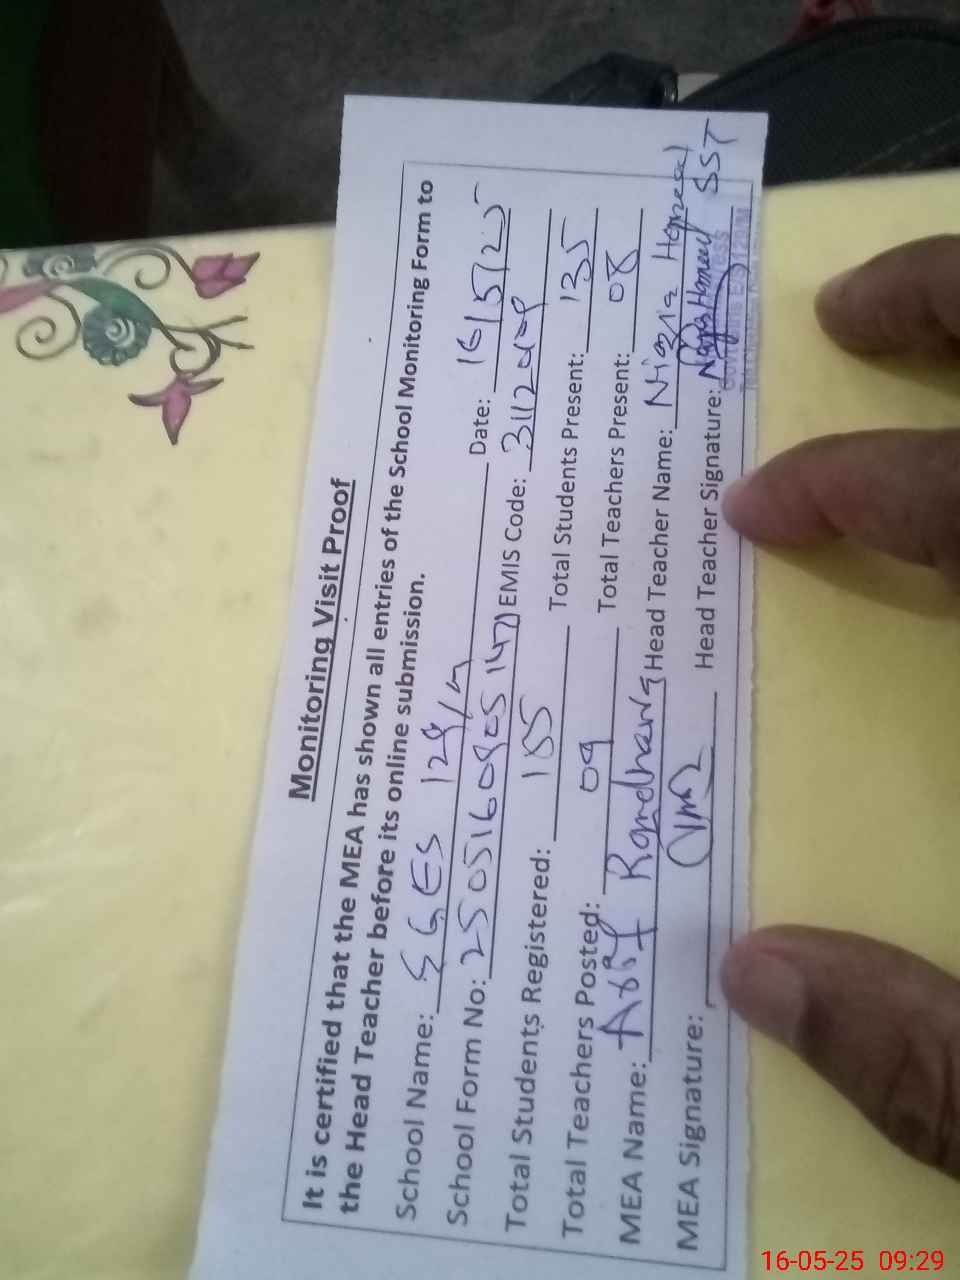 Monitoring Visit Proof
It is certified that the MEA has shown all entries of the School Monitoring Form to
the Head Teacher before its online submission.
School Name: GGES 129/m Date: 16/5/25
School Form No: EMIS Code:
Total Students Registered: 155 Total Students Present: 135
Total Teachers Posted: 09 Total Teachers Present: 08
MEA Name: Head Teacher Name:
MEA Signature: Head Teacher Signature: SST
16-05-25 09:29